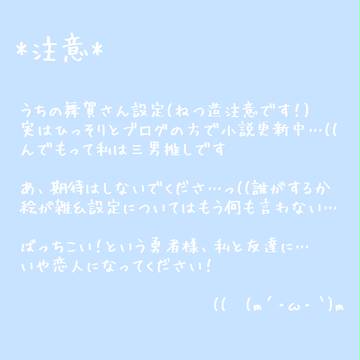 *注意*
うちの舞賀さん設定(ねつ造注意です!)
実はひっそりとブログの方で小説更新中…((
んでもって私は三男推しです
あ、期待はしないでくださ…っ((誰がするか
絵が雑&設定についてはもう何も言わない…
ばっちこい!という勇者様、私と友達に…
いや恋人になってください!
(( (m´・ω・`)m